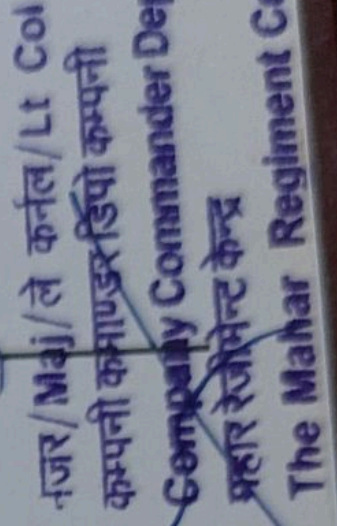 मेजर/Maj/ले कर्नल/Lt Col
कम्पनी कमाण्डर डिपो कम्पनी
Company Commander Dep
महार रेजीमेन्ट केन्द्र
The Mahar Regiment C